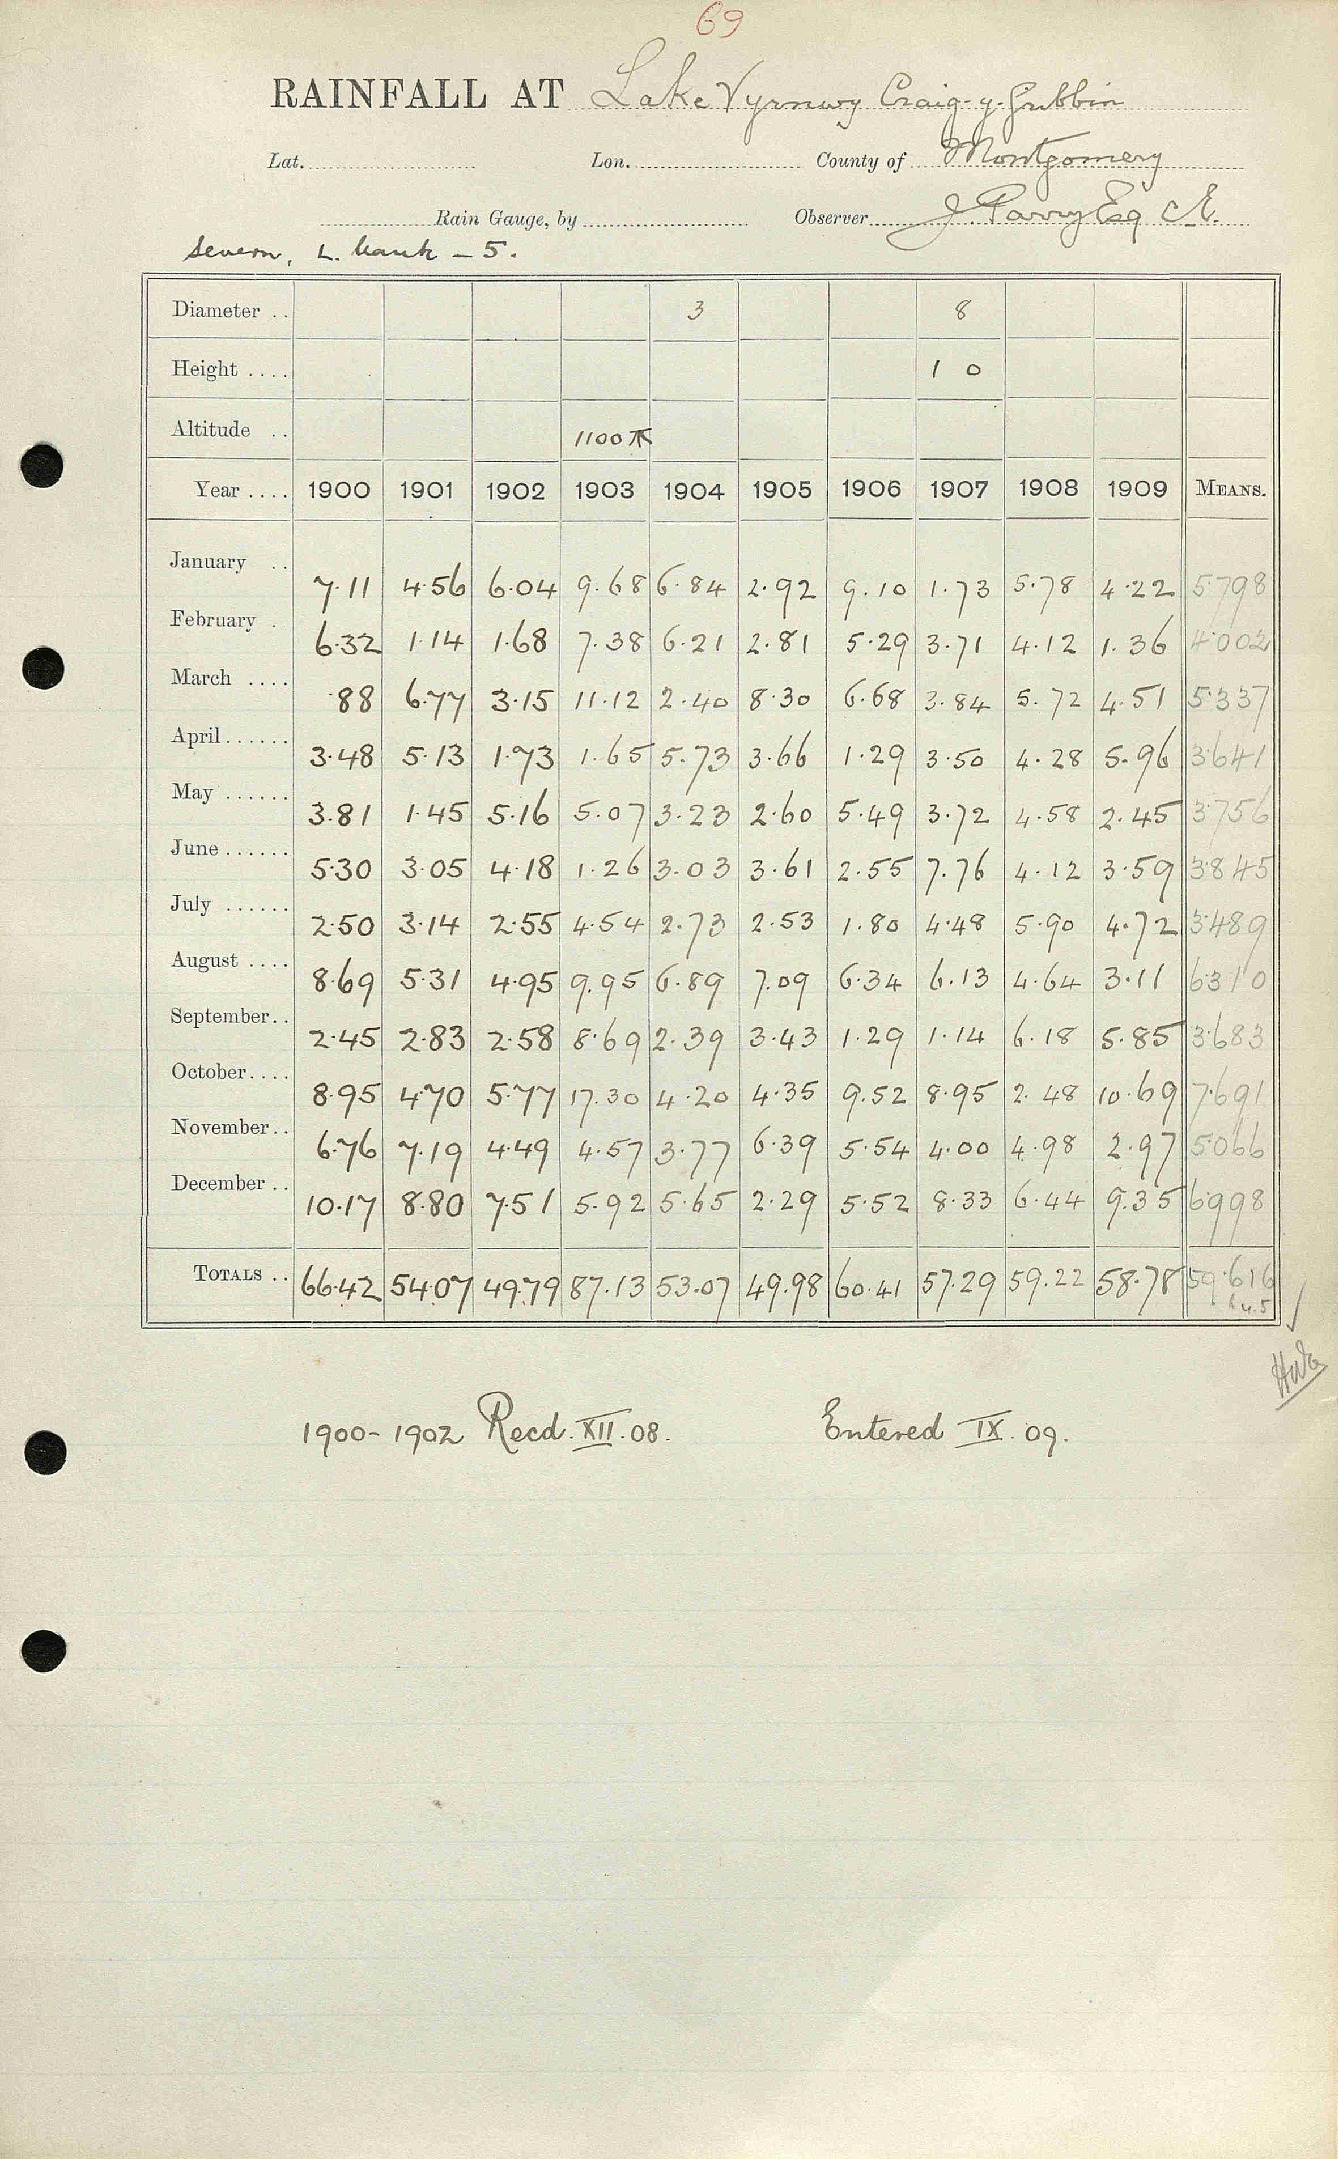 69
RAINFALL AT Lake Vyrnwy Craig-y-Gribbin
Lat. Lon. County of Montgomery
Rain Gauge, by Observer J. Parry Esq C.E.
Severn, L. bank – 5.
Diameter .. 3 8
Height .... 1 0
Altitude .. 1100 ft
Year .... 1900 1901 1902 1903 1904 1905 1906 1907 1908 1909 MEANS.
January .. 7.11 4.56 6.04 9.68 6.84 2.92 9.10 1.73 5.78 4.22 5.798
February . 6.32 1.14 1.68 7.38 6.21 2.81 5.29 3.71 4.12 1.36 4.002
March .... .88 6.77 3.15 11.12 2.40 8.30 6.68 3.84 5.72 4.51 5.337
April ...... 3.48 5.13 1.73 1.65 5.73 3.66 1.29 3.50 4.28 5.96 3.641
May ...... 3.81 1.45 5.16 5.07 3.23 2.60 5.49 3.72 4.58 2.45 3.756
June ...... 5.30 3.05 4.18 1.26 3.03 3.61 2.55 7.76 4.12 3.59 3.845
July ...... 2.50 3.14 2.55 4.54 2.73 2.53 1.80 4.48 5.90 4.72 3.489
August .... 8.69 5.31 4.95 9.95 6.89 7.09 6.34 6.13 4.64 3.11 6.310
September .. 2.45 2.83 2.58 8.69 2.39 3.43 1.29 1.14 6.18 5.85 3.683
October .... 8.95 4.70 5.77 17.30 4.20 4.35 9.52 8.95 2.48 10.69 7.691
November .. 6.76 7.19 4.49 4.57 3.77 6.39 5.54 4.00 4.98 2.97 5.066
December .. 10.17 8.80 7.51 5.92 5.65 2.29 5.52 8.33 6.44 9.35 6.998
TOTALS .. 66.42 54.07 49.79 87.13 53.07 49.98 60.41 57.29 59.22 58.78 59.616
1900-1902 Recd. XII.08. Entered IX.09.